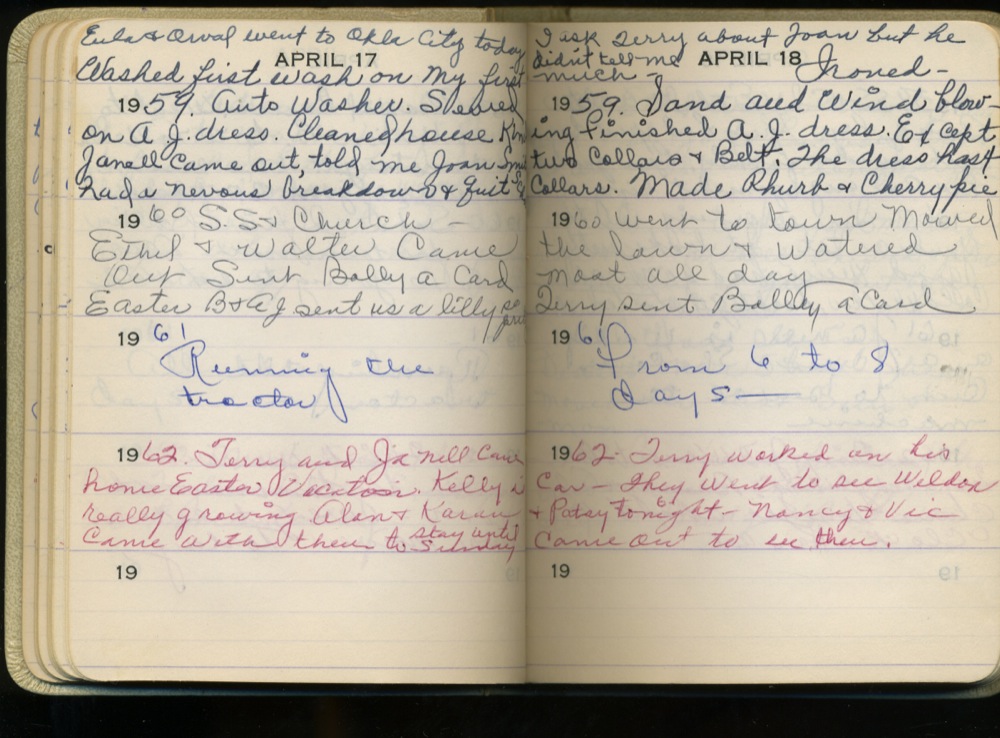 Eula & Orval went to Okla City today
APRIL 17
Washed first wash on My first
1959. Auto Washer. Sewed
on A. J. dress. Cleaned house Kim
Janell Came out, told me Joan
had a nervous breakdown & quit
1960 S.S & Church -
Ethel & Walter Came
Out Sent Bolly a Card
Easter B & A J sent us a lilly
1961
Running the
tractor
1962. Terry and Ja nell Came
home Easter Vacation. Kelly is
really growing Alan & Karan
Came with them to stay until
Sunday
19
I ask Jerry about Joan but he
didn't tell me
APRIL 18
much - Ironed -
1959. Sand and Wind blow-
ing finished A. J. dress. Except
two Collars & Belt. The dress hast
Collars. Made Rhurb & Cherry pie
1960 went to town Mowed
the lawn & Watered
most all day
Terry sent Bolley a Card
1961
From 6 to 8
days
1962. Terry worked on his
Car - they went to see Weldon
& Patsy tonight - Nancy & Vic
Came out to see them.
19